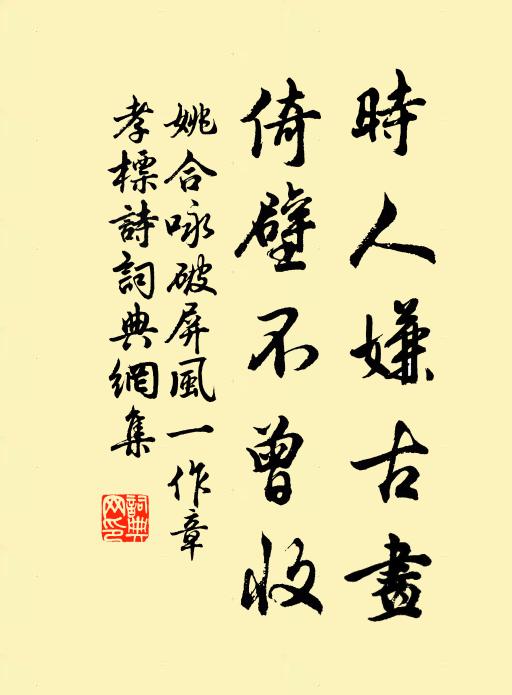 時人嫌古畫
倚壁不曾收
姚合咏破屏風一作章
孝標詩詞典網集
詞典網印